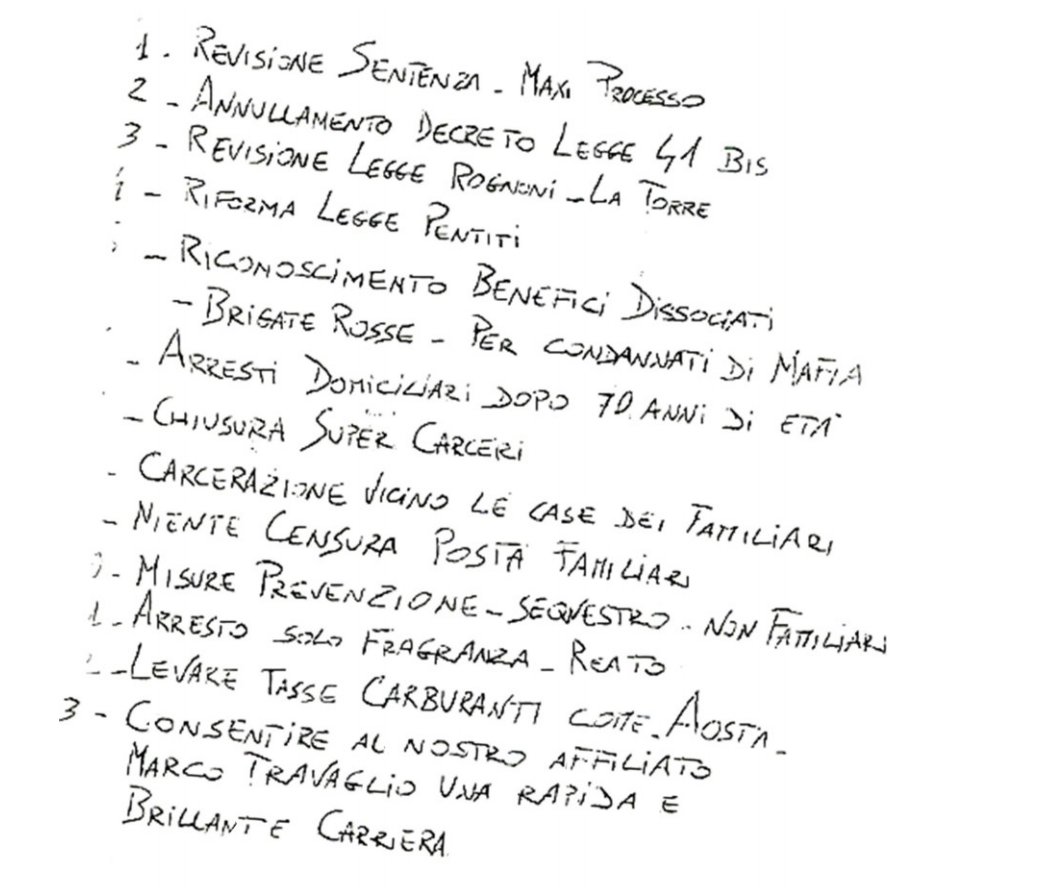 1. REVISIONE SENTENZA - MAXI PROCESSO
2 - ANNULLAMENTO DECRETO LEGGE 41 BIS
3 - REVISIONE LEGGE ROGNONI - LA TORRE
- RIFORMA LEGGE PENTITI
- RICONOSCIMENTO BENEFICI DISSOCIATI
- BRIGATE ROSSE - PER CONDANNATI DI MAFIA
- ARRESTI DOMICILIARI DOPO 70 ANNI DI ETA'
- CHIUSURA SUPER CARCERI
- CARCERAZIONE VICINO LE CASE DEI FAMILIARI
- NIENTE CENSURA POSTA FAMILIARI
- MISURE PREVENZIONE - SEQUESTRO - NON FAMILIARI
1 - ARRESTO SOLO FRAGRANZA - REATO
- LEVARE TASSE CARBURANTI COME - AOSTA -
3 - CONSENTIRE AL NOSTRO AFFILIATO
MARCO TRAVAGLIO UNA RAPIDA E
BRILLANTE CARRIERA